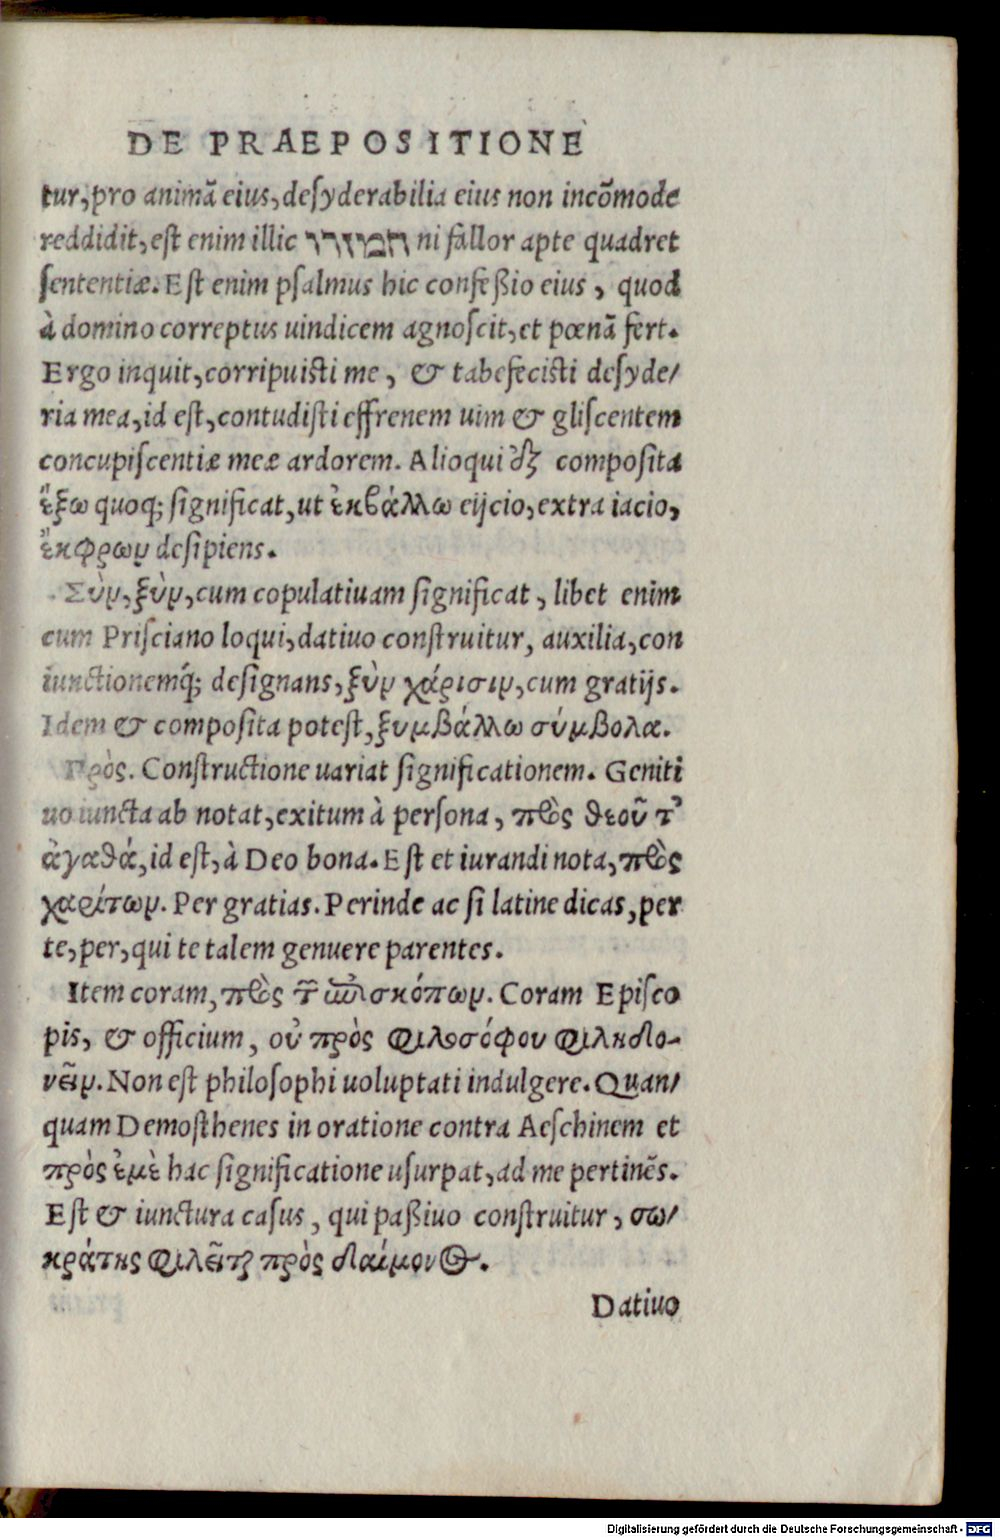 DE PRAEPOSITIONE
tur, pro animã eius, desyderabilia eius non incõmode
reddidit, est enim illic ni fallor apte quadret
sententiæ. Est enim psalmus hic confeßio eius, quod
à domino correptus uindicem agnoscit, et pœnã fert.
Ergo inquit, corripuisti me, & tabefecisti desyde/
ria mea, id est, contudisti effrenem uim & gliscentem
concupiscentiæ meæ ardorem. Alioqui composita
ἔξω quoq; significat, ut ἐκβάλλω eijcio, extra iacio,
ἔκφρων desipiens.
Σὺν, ξὺν, cum copulatiuam significat, libet enim
cum Prisciano loqui, datiuo construitur, auxilia, con
iunctionemq́; designans, ξὺν χάρισιν, cum gratijs.
Idem & composita potest, ξυμβάλλω σύμβολα.
Πρὸς. Constructione uariat significationem. Geniti
uo iuncta ab notat, exitum à persona, πρὸς θεοῦ τ᾽
ἀγαθά, id est, à Deo bona. Est et iurandi nota, πρὸς
χαρίτων. Per gratias. Perinde ac si latine dicas, per
te, per, qui te talem genuere parentes.
Item coram, πρὸς τῶν ἐπισκόπων. Coram Episco
pis, & officium, οὐ πρὸς φιλοσόφου φιληδο-
νεῖν. Non est philosophi uoluptati indulgere. Quan/
quam Demosthenes in oratione contra Aeschinem et
πρὸς ἐμὲ hac significatione usurpat, ad me pertinẽs.
Est & iunctura casus, qui paßiuo construitur, σω/
κράτης φιλεῖται πρὸς δαίμονος.
Datiuo
Digitalisierung gefördert durch die Deutsche Forschungsgemeinschaft - DFG